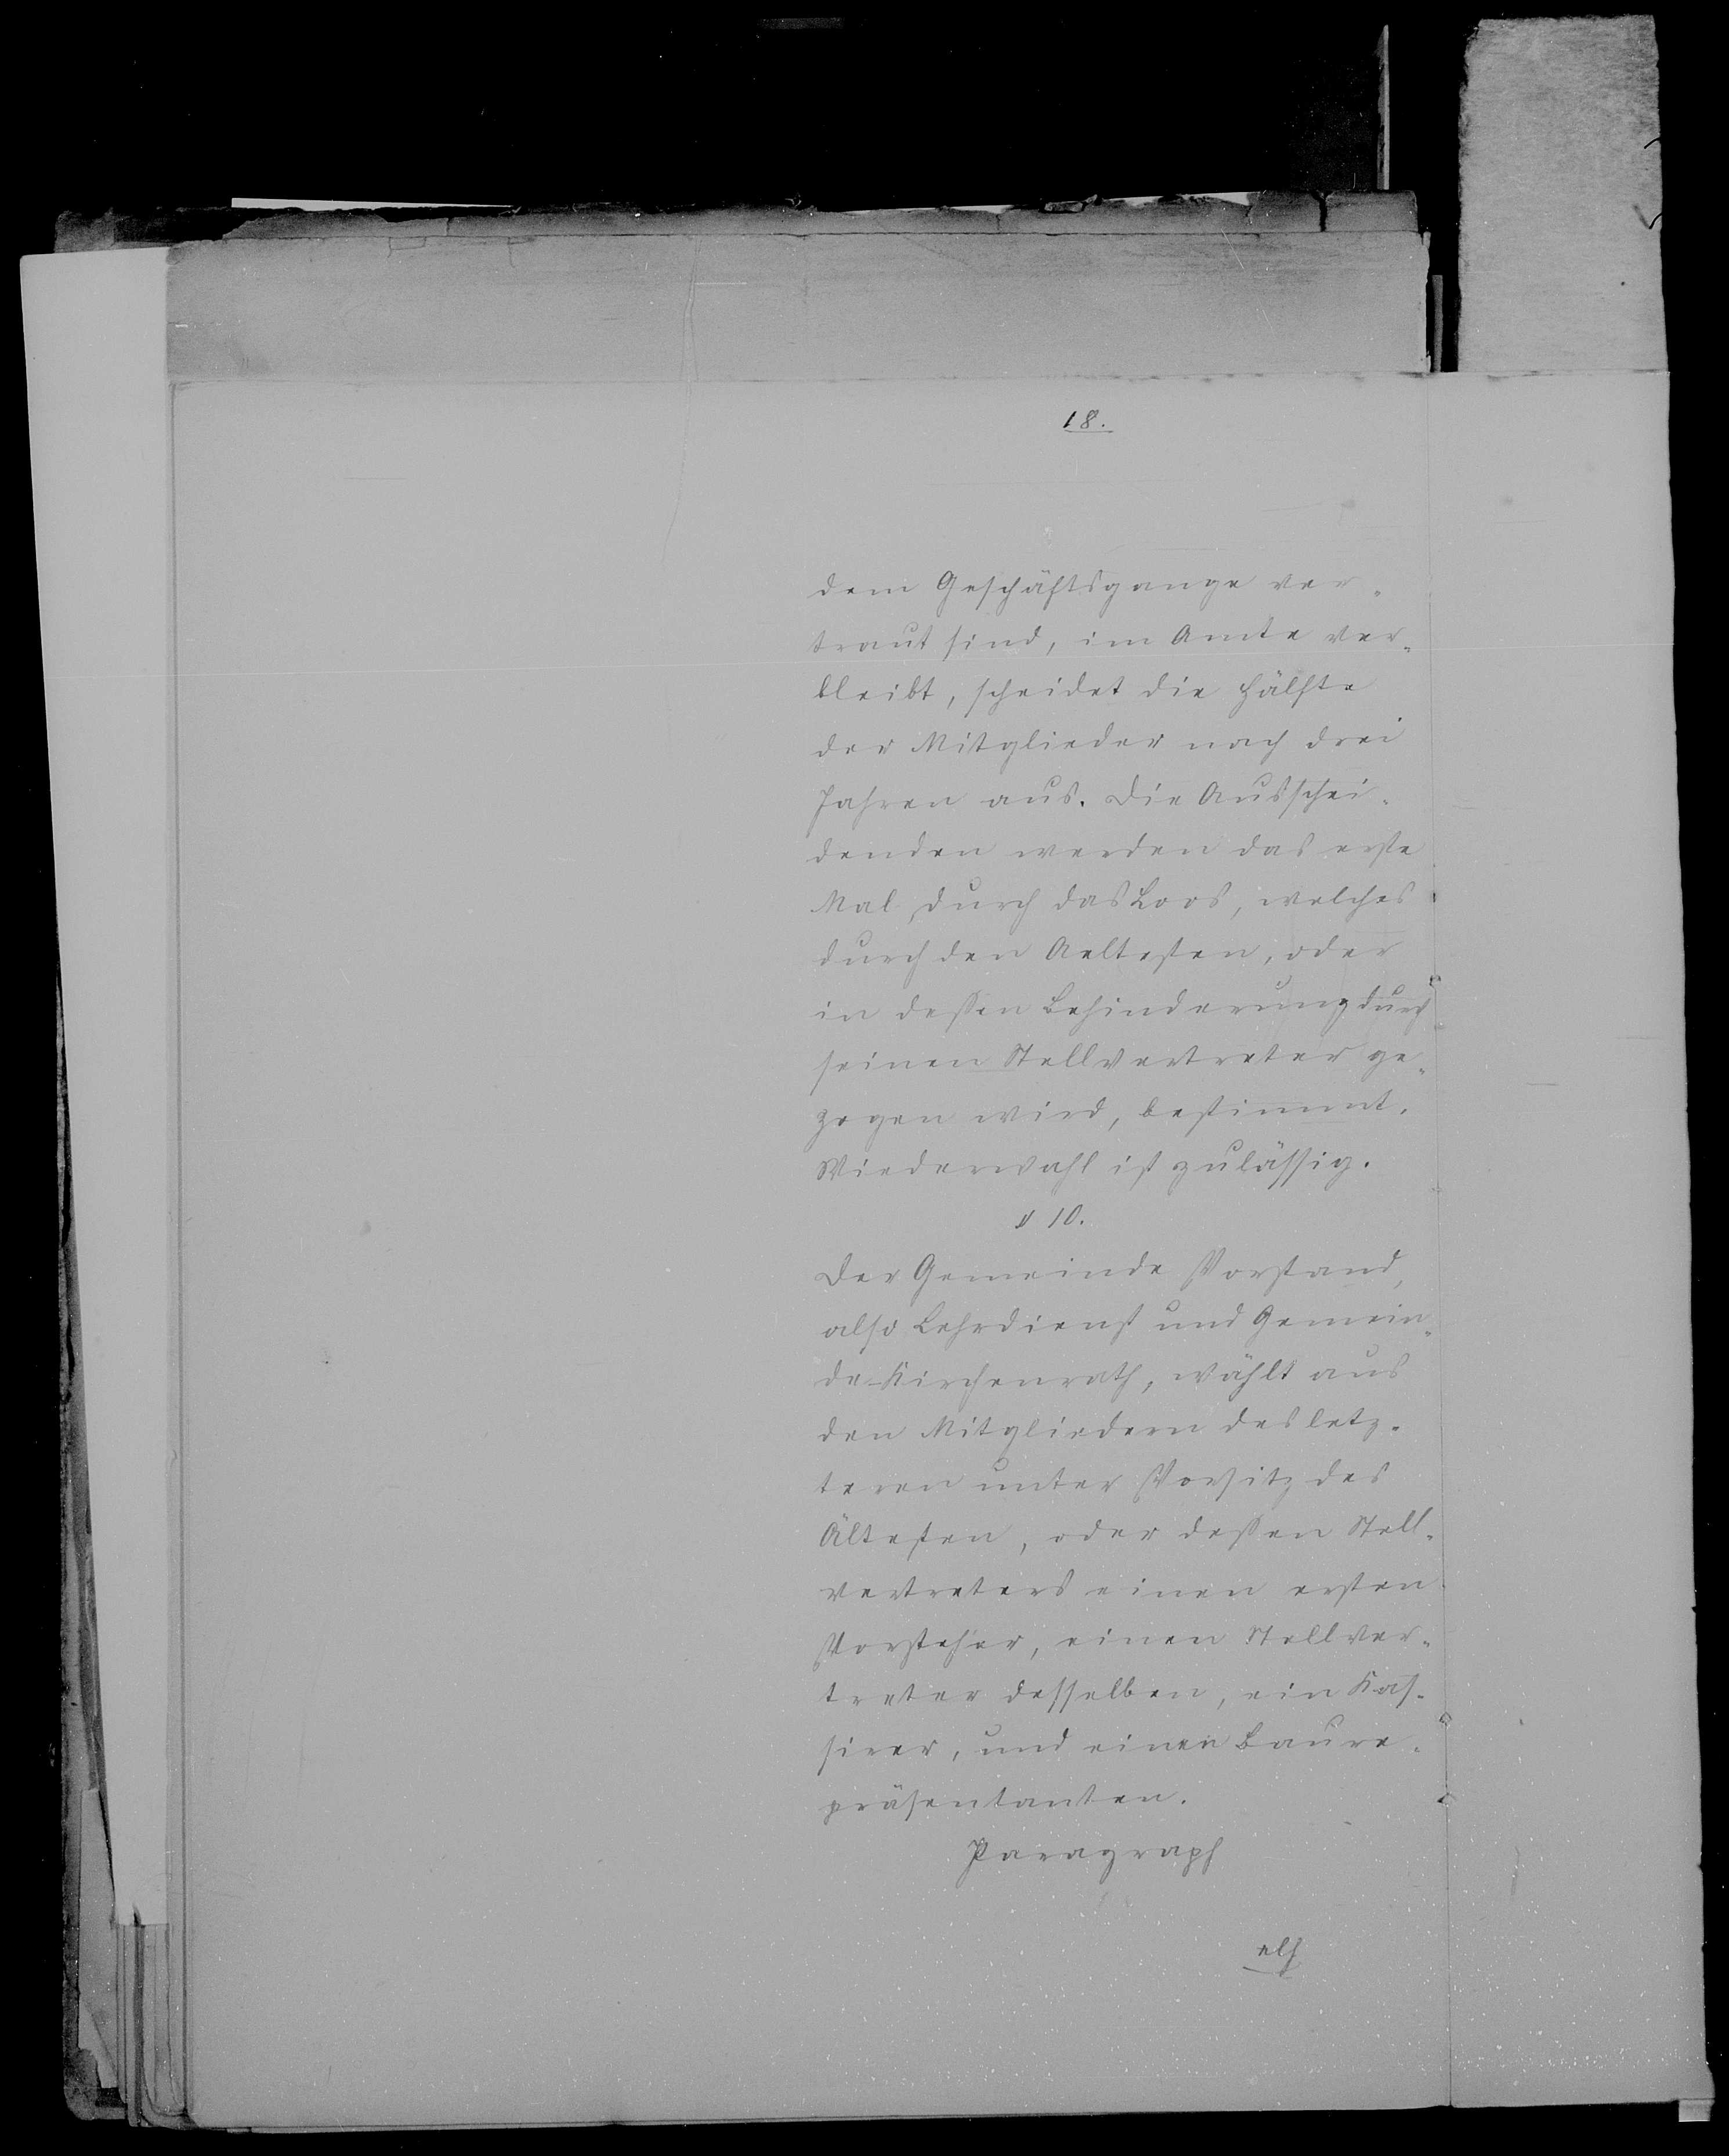 18.
dem Geschäftsgange ver-
traut sind, im Amte ver-
bleibt, scheidet die Hälfte
der Mitglieder nach drei
Jahren aus. Die Ausschei-
denden werden das erste
Mal durch das Loos, welches
durch den Aeltesten, oder
in dessen Behinderung durch
seinen Stellvertreter ge-
zogen wird, bestimmt.
Wiederwahl ist zulässig.
§ 10.
Der Gemeinde Vorstand,
also Lehrdienst und Gemein-
de-Kirchenrath, wählt aus
den Mitgliedern des letz-
teren unter Vorsitz des
Ältesten, oder dessen Stell-
vertreters einen ersten
Vorsteher, einen Stellver-
treter desselben, ein Kas-
sirer, und einen Baure-
präsentanten.
Paragraph
elf